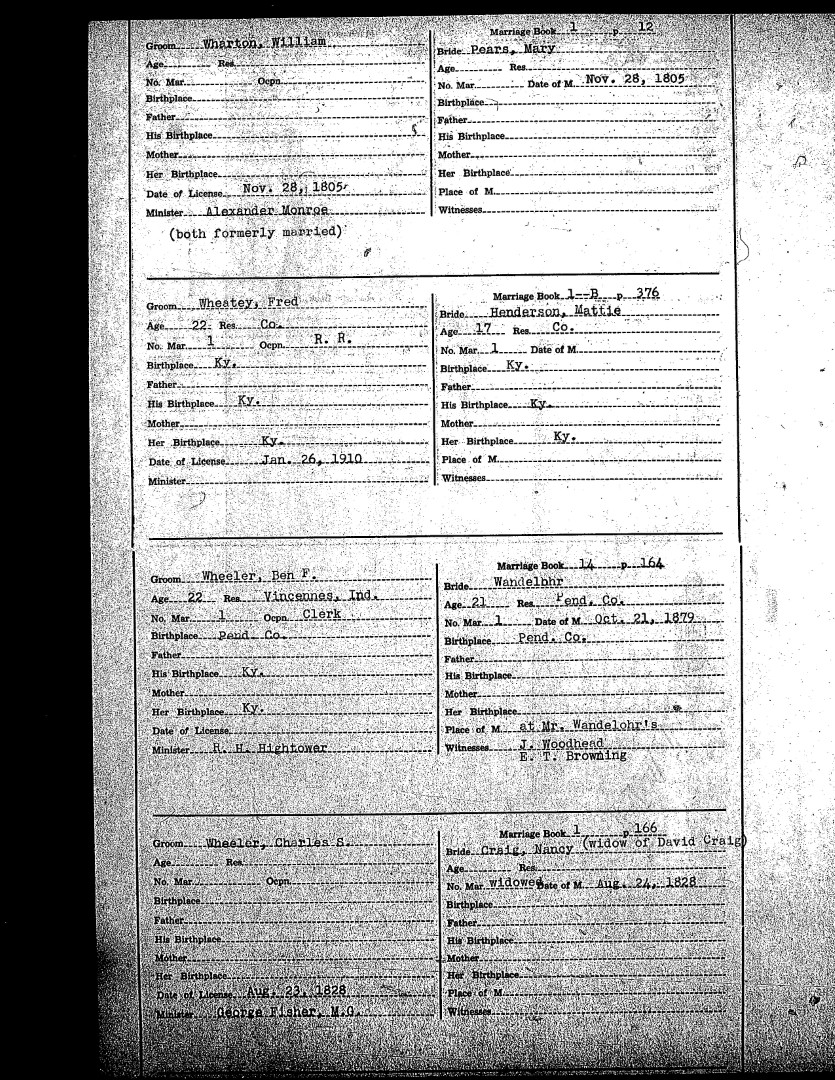 Groom Wharton, William
Age Res.
No. Mar. Ocpn.
Birthplace
Father
His Birthplace
Mother
Her Birthplace
Date of License Nov. 28, 1805
Minister Alexander Monroe
(both formerly married)
Marriage Book 1 p. 12
Bride Pears, Mary
Age Res.
No. Mar. Date of M. Nov. 28, 1805
Birthplace
Father
His Birthplace
Mother
Her Birthplace
Place of M.
Witnesses
Groom Wheatey, Fred
Age 22 Res. Co.
No. Mar. 1 Ocpn. R. R.
Birthplace Ky.
Father
His Birthplace Ky.
Mother
Her Birthplace Ky.
Date of License Jan. 26, 1910
Minister
Marriage Book 1--B p. 376
Bride Henderson, Mattie
Age 17 Res. Co.
No. Mar. 1 Date of M.
Birthplace Ky.
Father
His Birthplace Ky.
Mother
Her Birthplace Ky.
Place of M.
Witnesses
Groom Wheeler, Ben F.
Age 22 Res. Vincennes, Ind.
No. Mar. 1 Ocpn. Clerk
Birthplace Pend. Co.
Father
His Birthplace Ky.
Mother
Her Birthplace Ky.
Date of License
Minister R. H. Hightower
Marriage Book 14 p. 164
Bride Wandelohr
Age 21 Res. Pend. Co.
No. Mar. 1 Date of M. Oct. 21, 1879
Birthplace Pend. Co.
Father
His Birthplace
Mother
Her Birthplace
Place of M. at Mr. Wandelohr's
Witnesses J. Woodhead
E. T. Browning
Groom Wheeler, Charles S.
Age Res.
No. Mar. Ocpn.
Birthplace
Father
His Birthplace
Mother
Her Birthplace
Date of License Aug. 23, 1828
Minister George Fisher, M.G.
Marriage Book 1 p. 166
Bride Craig, Nancy (widow of David Craig)
Age Res.
No. Mar. widowed Date of M. Aug. 24, 1828
Birthplace
Father
His Birthplace
Mother
Her Birthplace
Place of M.
Witnesses